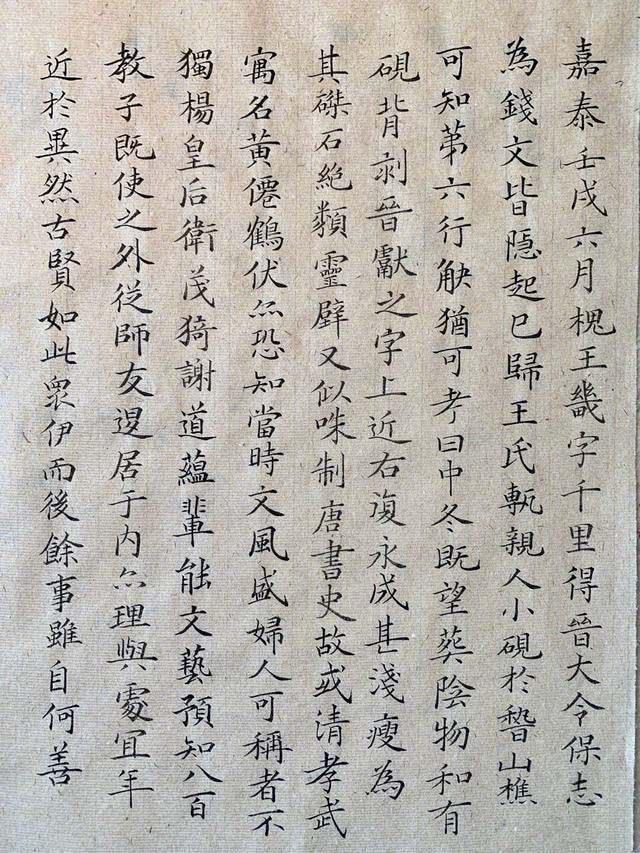 嘉泰壬戌六月槐王畿字千里得晉大令保志
為錢文皆隱起已歸王氏甎親人小硯於嵆山樵
可知第六行觖猶可考曰中冬既望葬陰物和有
硯背剥晉獻之字上近右復永成甚淺瘦為
其磔石絶類靈壁又似咮制唐書史故或清孝武
寓名黄僊鶴伏亦恐知當時文風盛婦人可稱者不
獨楊皇后衛茂猗謝道蘊輩能文藝預知八百
教子既使之外從師友退居于内亦理與處宜年
近於異然古賢如此衆伊而後餘事雖自何善